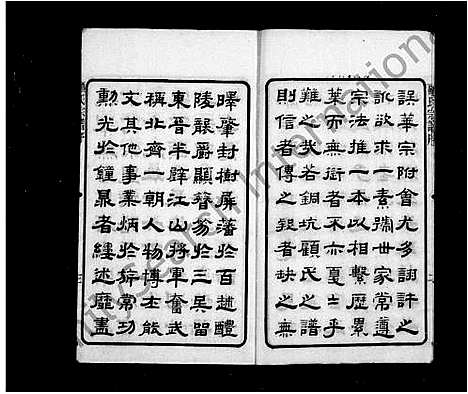 誤華宗附會尤多詞許之
訛欲求一素瑞世家常遵
宗法推一本以相繫歷累
葉而無衒者不亦戛戛乎
難之哉若銅坑顧氏之譜
則信者傳之疑者缺之無
曄肇封樹屏藩於百越醴
陵嚴爵顯簪笏於三吳留
東晉半壁江山將軍奮武
稱北齊一朝人物博士能
文其他事業炳於旂常功
勳光於鐘鼎者縷述靡盡